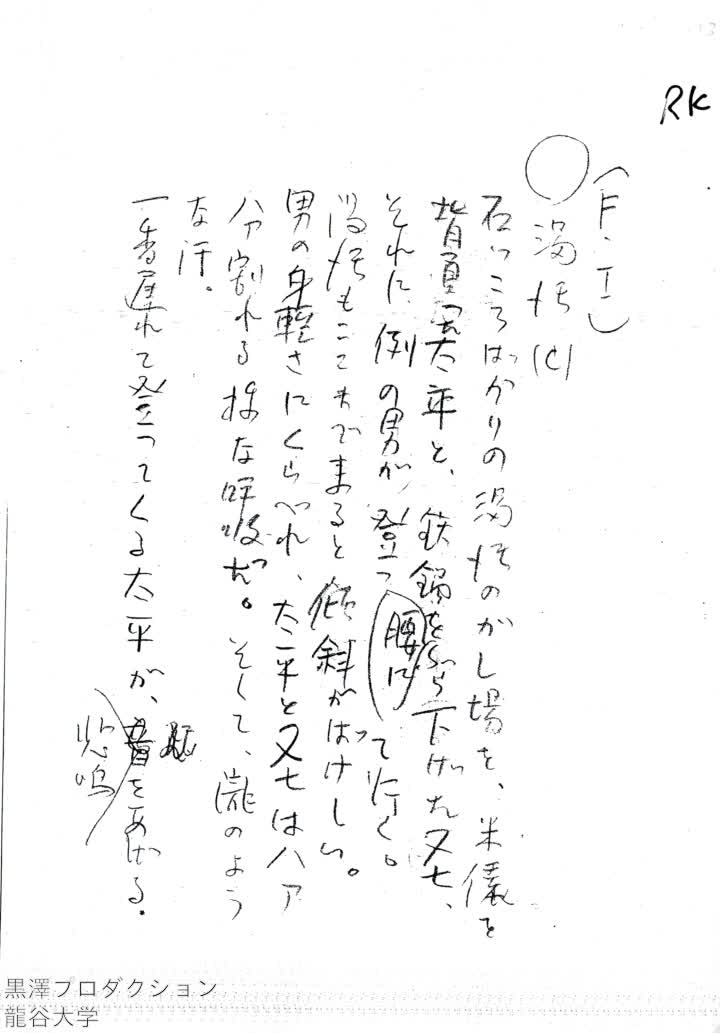 RK
(F・I)
○涸沢(C)
石っころばかりの涸沢のがし場を、米俵を
背負った太平と、鉄鍋を腰にぶら下げた又七、
それに、例の男が、登って行く。
涸沢もここまでまると傾斜がはげしい。
男の身軽さにくらべれ、太平と又七はハア
ハア割れる様な呼吸だ。そして、滝のよう
な汗。
一番遅れて登ってくる太平が、悲鳴をあげる。
黒澤プロダクション
龍谷大学